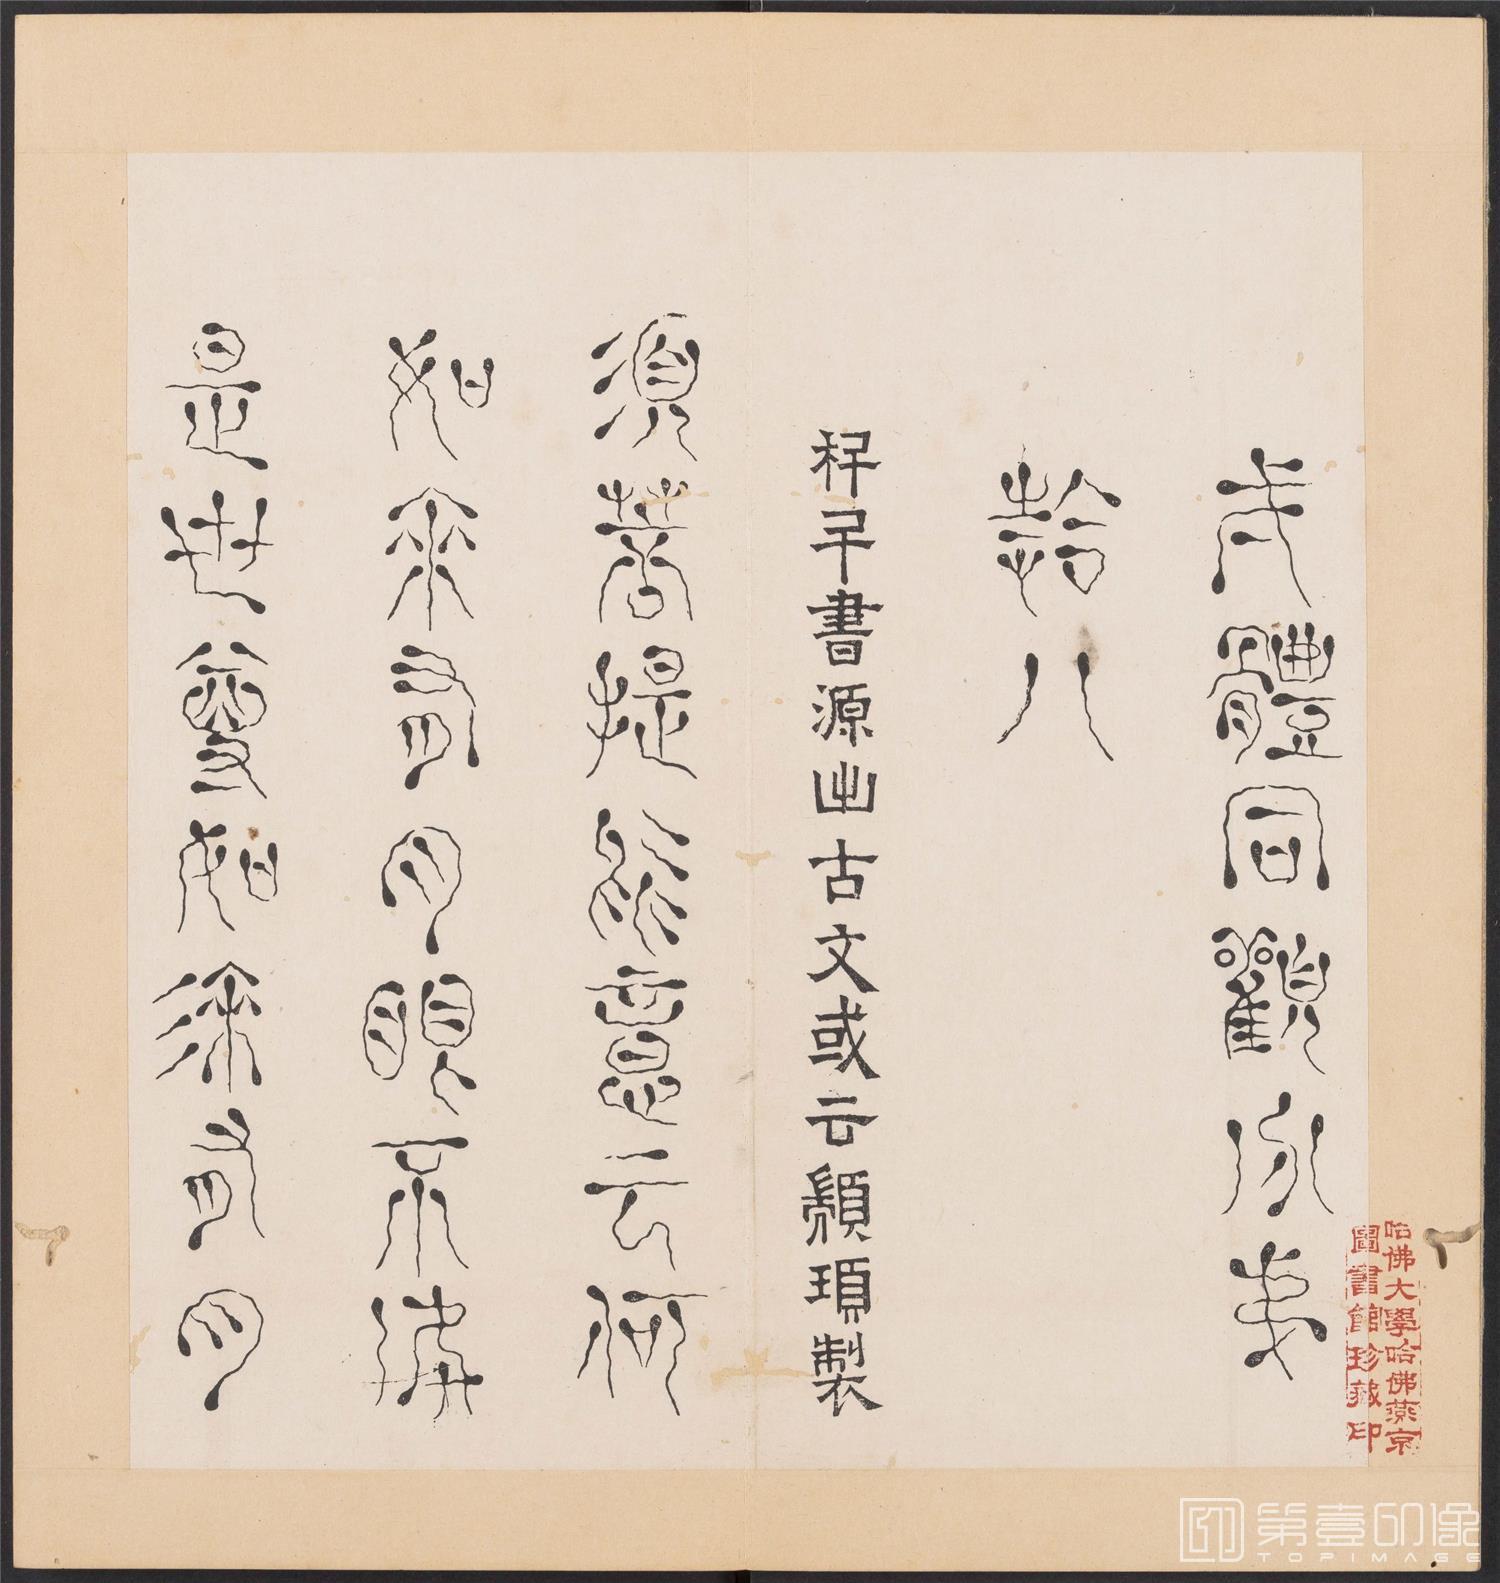 弌體同觀分弟
拾八
科斗書源出古文或云顓頊製
須菩提於意云何
如來有肉眼不如
是世尊如來有肉
哈佛大學哈佛燕京
圖書館珍藏印
第壹印像
TOPIMAGE